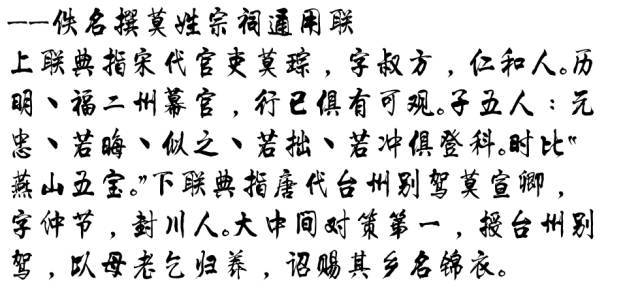 ——佚名撰莫姓宗祠通用联
上联典指宋代官吏莫琮，字叔方，仁和人。历
明、福二州幕官，行已俱有可观。子五人：元
忠、若晦、似之、若拙、若冲俱登科。时比“
燕山五宝。”下联典指唐代台州别驾莫宣卿，
字仲节，封川人。大中间对策第一，授台州别
驾，以母老乞归养，诏赐其乡名锦衣。